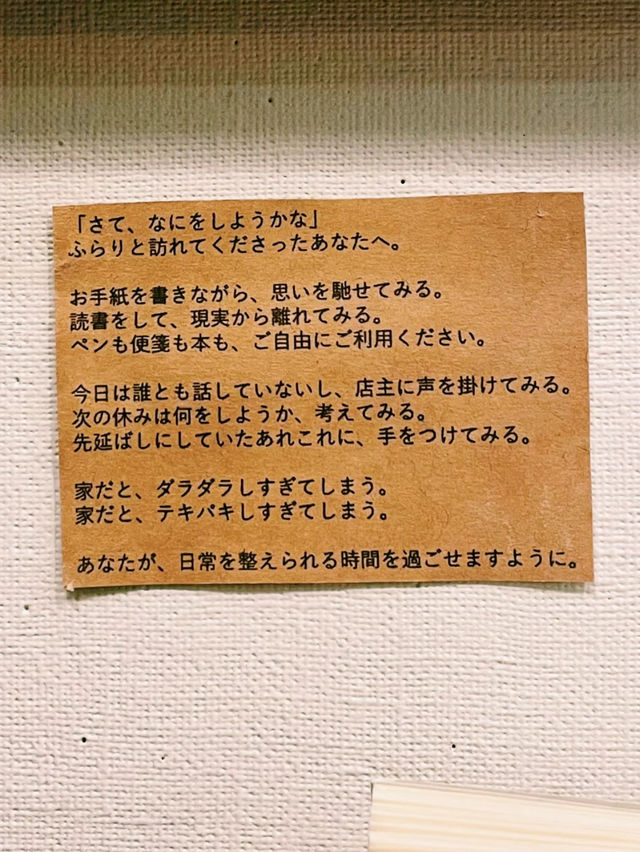 「さて、なにをしようかな」
ふらりと訪れてくださったあなたへ。
お手紙を書きながら、思いを馳せてみる。
読書をして、現実から離れてみる。
ペンも便箋も本も、ご自由にご利用ください。
今日は誰とも話していないし、店主に声を掛けてみる。
次の休みは何をしようか、考えてみる。
先延ばしにしていたあれこれに、手をつけてみる。
家だと、ダラダラしすぎてしまう。
家だと、テキパキしすぎてしまう。
あなたが、日常を整えられる時間を過ごせますように。